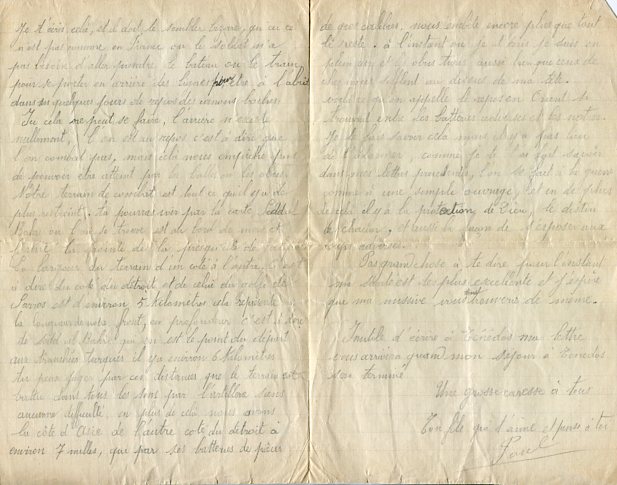 Je t'écris celà, et il doit te sembler bizarre, qu'ici ce
n'est pas comme en France où le soldat n'a
pas besoin d'aller prendre le bateau ou le train
pour se porter en arrière des lignes pour être à l'abri
dans ses quelques jours de repos des
Ici cela ne peut se faire, l'arrière n'existe
nullement, l'on est au repos c'est à dire que
l'on combat pas, mais celà nous empêche pas
de pouvoir être atteint par les balles ou les obus.
Notre terrain de combat est tout ce qu'il y a de
plus restreint. Tu pourras voir par la carte, Seddul
Bahr où l'on se trouve est au bord de mer et
la pointe de la presqu'île de
La largeur du terrain d'un coté à l'autre, c'est
à dire du coté du détroit et de celui du golfe de
Saros est d'environ 5 kilomètres celà représente
la longueur de notre front, en profondeur c'est à dire
de Sedul Bahr qui en est le point de départ
aux tranchées turques il y a environ 6 kilomètres
Tu peux juger par ces distances que le terrain est
battu dans tous les sens par l'artillerie sans
aucune difficulté en plus de celà nous avons
la côte d'Asie de l'autre coté du détroit à
environ 7 milles, que par ses batteries de pièces
de gros calibre, nous embête encore plus que tout
le reste. à l'instant où je t'écris je suis en
plein air et les obus turcs aussi bien que ceux de
sifflent au dessus de ma tête.
qu'on appelle le repos en Orient. Se
trouvant entre les batteries ennemies et les notres.
Je te fais savoir celà mais il n'y a pas lieu
de t'alarmer, comme je te l'ai fait savoir
dans mes lettres précédentes, l'on se fait à la guerre
comme à une simple ouvrage, et en de plus
de celà il y a la protection de Dieu, le destin
de chacun, et aussi la façon de s'exposer aux
Pas grand chose à te dire pour l'instant
ma santé est des plus excellente et j'espère
que ma missive vous trouvera de même.
Inutile d'écrire à Ténédos ma lettre
vous arrivera quand mon séjour à Ténédos
sera terminé
Une grosse caresse à tous
Ton fils qui t'aime et pense à toi